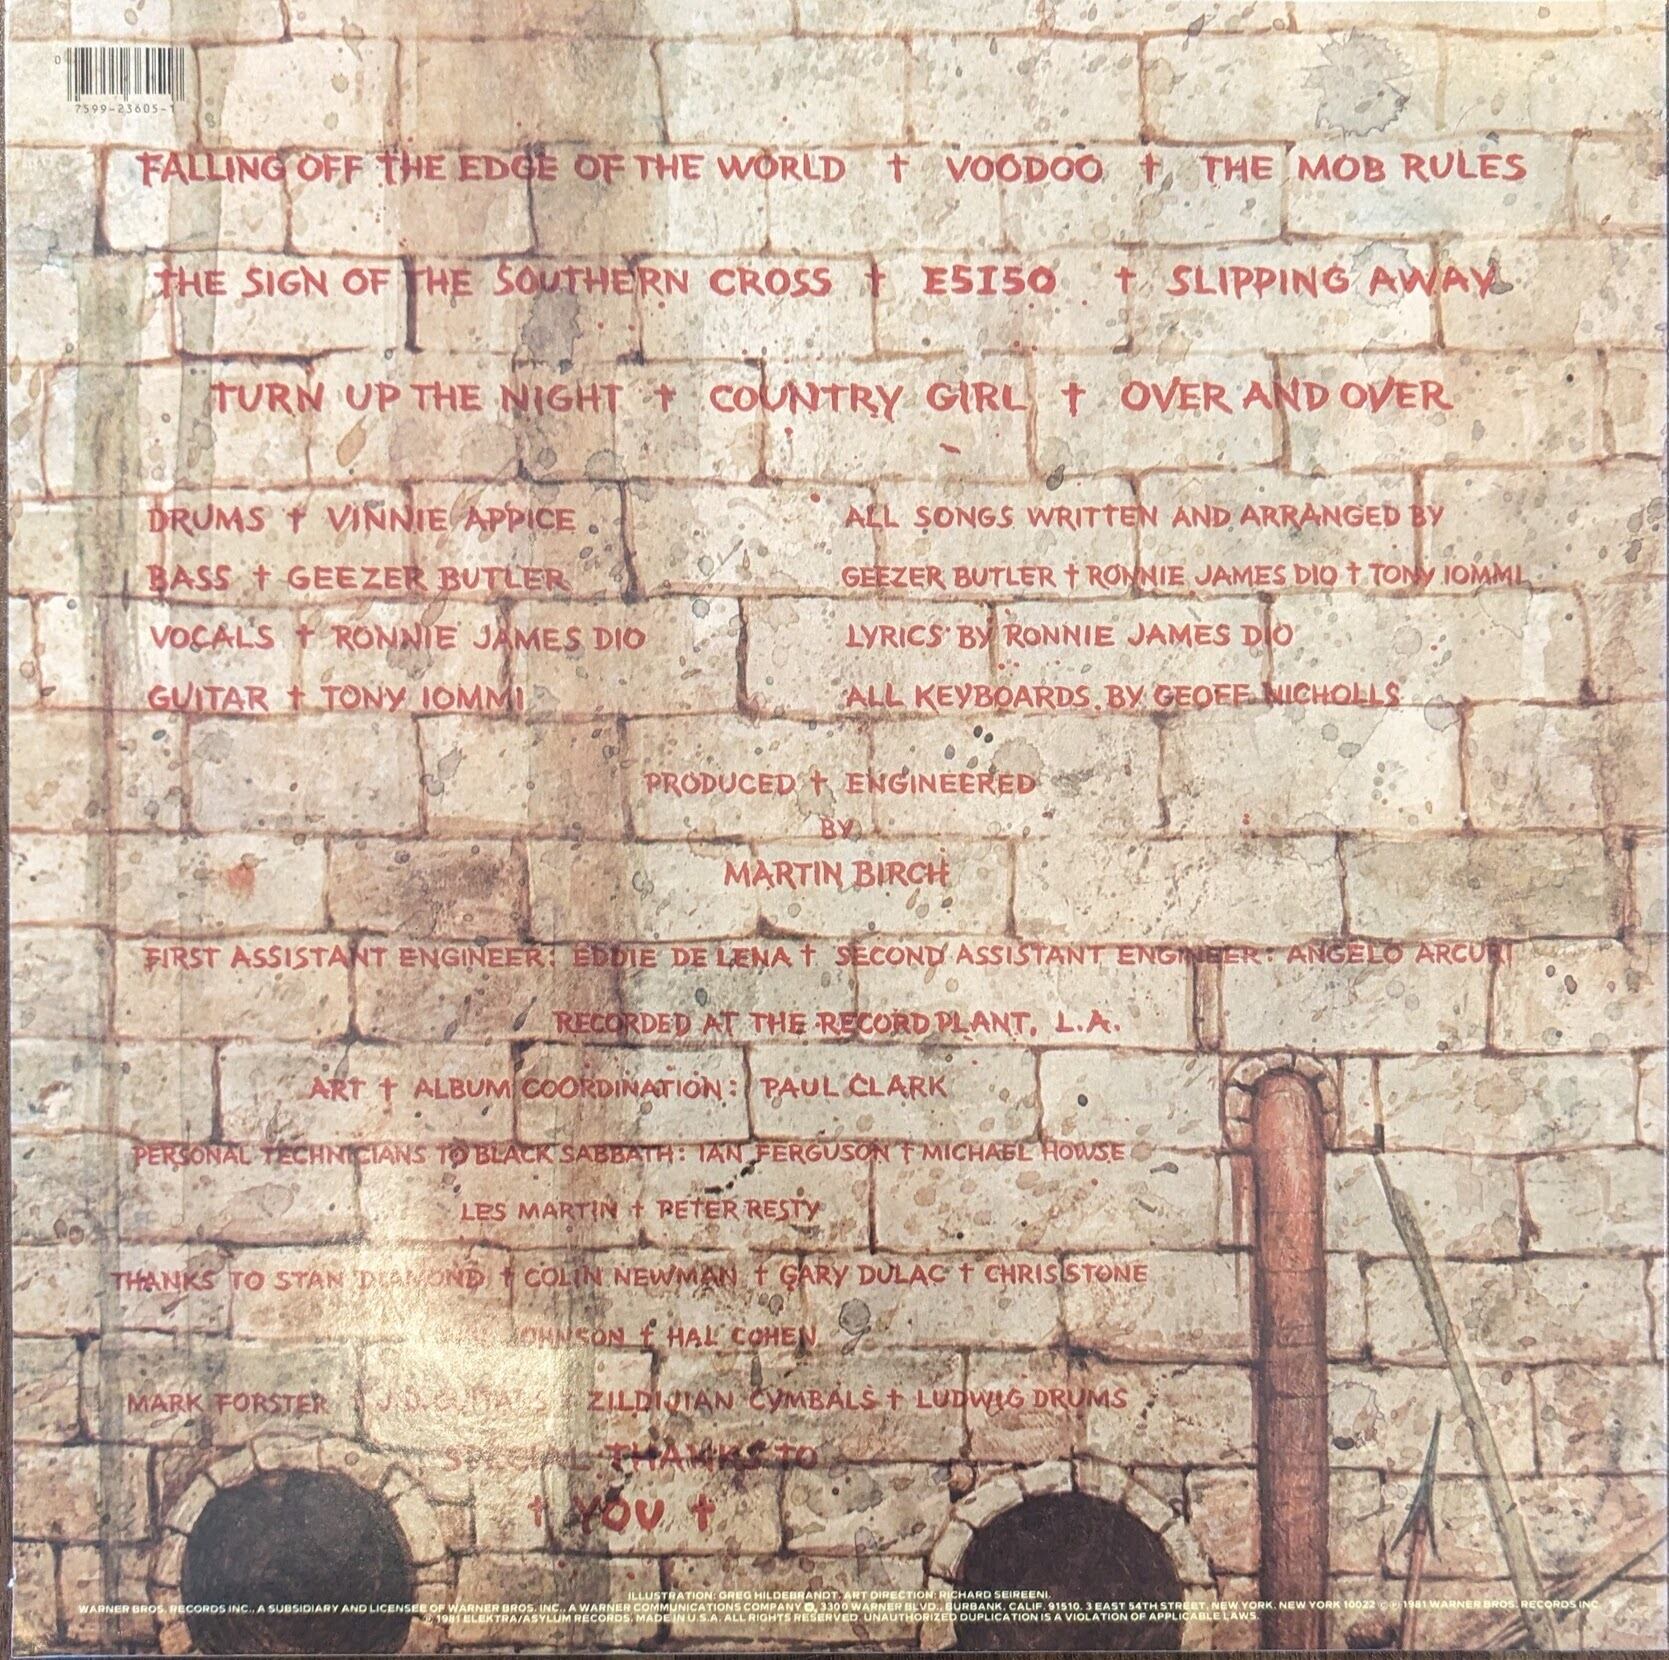 0
7599-23605-1
FALLING OFF THE EDGE OF THE WORLD † VOODOO † THE MOB RULES
THE SIGN OF THE SOUTHERN CROSS † E5150 † SLIPPING AWAY
TURN UP THE NIGHT † COUNTRY GIRL † OVER AND OVER
DRUMS † VINNIE APPICE
BASS † GEEZER BUTLER
VOCALS † RONNIE JAMES DIO
GUITAR † TONY IOMMI
ALL SONGS WRITTEN AND ARRANGED BY
GEEZER BUTLER † RONNIE JAMES DIO † TONY IOMMI
LYRICS BY RONNIE JAMES DIO
ALL KEYBOARDS BY GEOFF NICHOLLS
PRODUCED † ENGINEERED
BY
MARTIN BIRCH
FIRST ASSISTANT ENGINEER: EDDIE DE LENA † SECOND ASSISTANT ENGINEER: ANGELO ARCURI
RECORDED AT THE RECORD PLANT, L.A.
ART † ALBUM COORDINATION: PAUL CLARK
PERSONAL TECHNICIANS TO BLACK SABBATH: IAN FERGUSON † MICHAEL HOWSE
LES MARTIN † PETER RESTY
THANKS TO STAN DIAMOND † COLIN NEWMAN † GARY DULAC † CHRIS STONE
JOHNSON † HAL COHEN
MARK FORSTER † J.D. GUITARS † ZILDIJIAN CYMBALS † LUDWIG DRUMS
SPECIAL THANKS TO
† YOU †
ILLUSTRATION: GREG HILDEBRANDT. ART DIRECTION: RICHARD SEIREENI.
WARNER BROS. RECORDS INC., A SUBSIDIARY AND LICENSEE OF WARNER BROS. INC., A WARNER COMMUNICATIONS COMPANY, 3300 WARNER BLVD., BURBANK, CALIF. 91510. 3 EAST 54TH STREET, NEW YORK, NEW YORK 10022 © ℗ 1981 WARNER BROS. RECORDS INC.
℗ 1981 ELEKTRA/ASYLUM RECORDS. MADE IN U.S.A. ALL RIGHTS RESERVED. UNAUTHORIZED DUPLICATION IS A VIOLATION OF APPLICABLE LAWS.